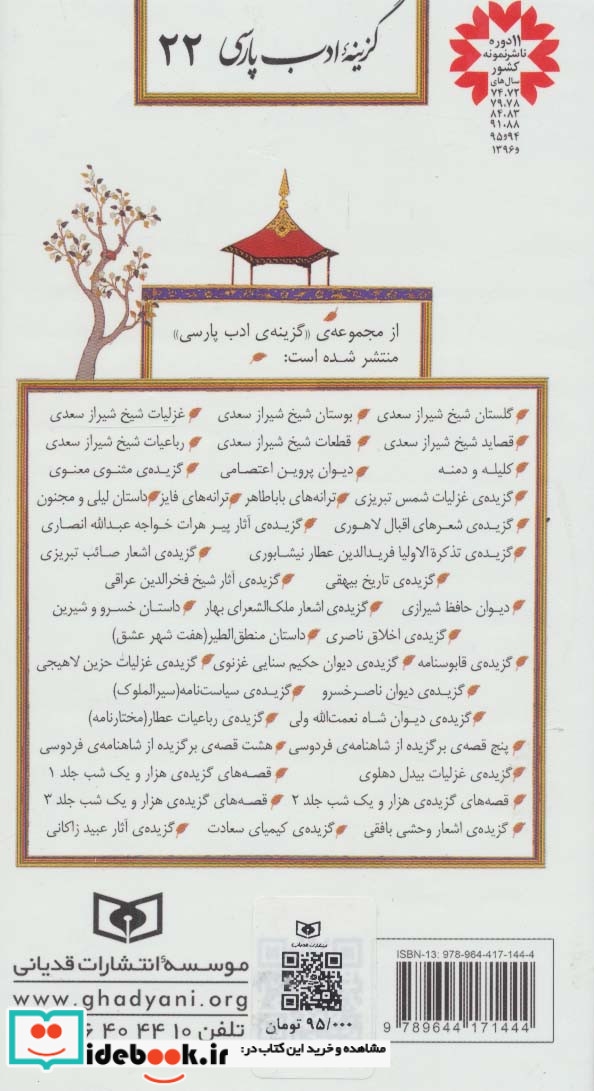 گزینهٔ ادب پارسی ۲۲
۱۱ دوره
ناشر نمونه
کشور
سال‌های
۷۴،۷۲
۷۹،۷۸
۸۴،۸۳
۹۱،۸۸
۹۴و۹۵
و۱۳۹۶
از مجموعه‌ی «گزینه‌ی ادب پارسی»
منتشر شده است:
گلستان شیخ شیراز سعدی بوستان شیخ شیراز سعدی غزلیات شیخ شیراز سعدی
قصاید شیخ شیراز سعدی قطعات شیخ شیراز سعدی رباعیات شیخ شیراز سعدی
کلیله و دمنه دیوان پروین اعتصامی گزیده‌ی مثنوی معنوی
گزیده‌ی غزلیات شمس تبریزی ترانه‌های باباطاهر ترانه‌های فایز داستان لیلی و مجنون
گزیده‌ی شعرهای اقبال لاهوری گزیده‌ی آثار پیر هرات خواجه عبدالله انصاری
گزیده‌ی تذکرة الاولیا فریدالدین عطار نیشابوری گزیده‌ی اشعار صائب تبریزی
گزیده‌ی تاریخ بیهقی گزیده‌ی آثار شیخ فخرالدین عراقی
دیوان حافظ شیرازی گزیده‌ی اشعار ملک‌الشعرای بهار داستان خسرو و شیرین
گزیده‌ی اخلاق ناصری داستان منطق‌الطیر(هفت شهر عشق)
گزیده‌ی قابوسنامه گزیده‌ی دیوان حکیم سنایی غزنوی گزیده‌ی غزلیات حزین لاهیجی
گزیده‌ی دیوان ناصرخسرو گزیده‌ی سیاست‌نامه(سیرالملوک)
گزیده‌ی دیوان شاه نعمت‌الله ولی گزیده‌ی رباعیات عطار(مختارنامه)
پنج قصه‌ی برگزیده از شاهنامه‌ی فردوسی هشت قصه‌ی برگزیده از شاهنامه‌ی فردوسی
گزیده‌ی غزلیات بیدل دهلوی قصه‌های گزیده‌ی هزار و یک شب جلد ۱
قصه‌های گزیده‌ی هزار و یک شب جلد ۲ قصه‌های گزیده‌ی هزار و یک شب جلد ۳
گزیده‌ی اشعار وحشی بافقی گزیده‌ی کیمیای سعادت گزیده‌ی آثار عبید زاکانی
موسسهٔ انتشارات قدیانی
www.ghadyani.org
تلفن ۱۰ ۴۴ ۴۰ ۶
۹۵/۰۰۰ تومان
ISBN-13: 978-964-417-144-4
9 789644 171444
مشاهده و خرید این کتاب در:
idebook.ir